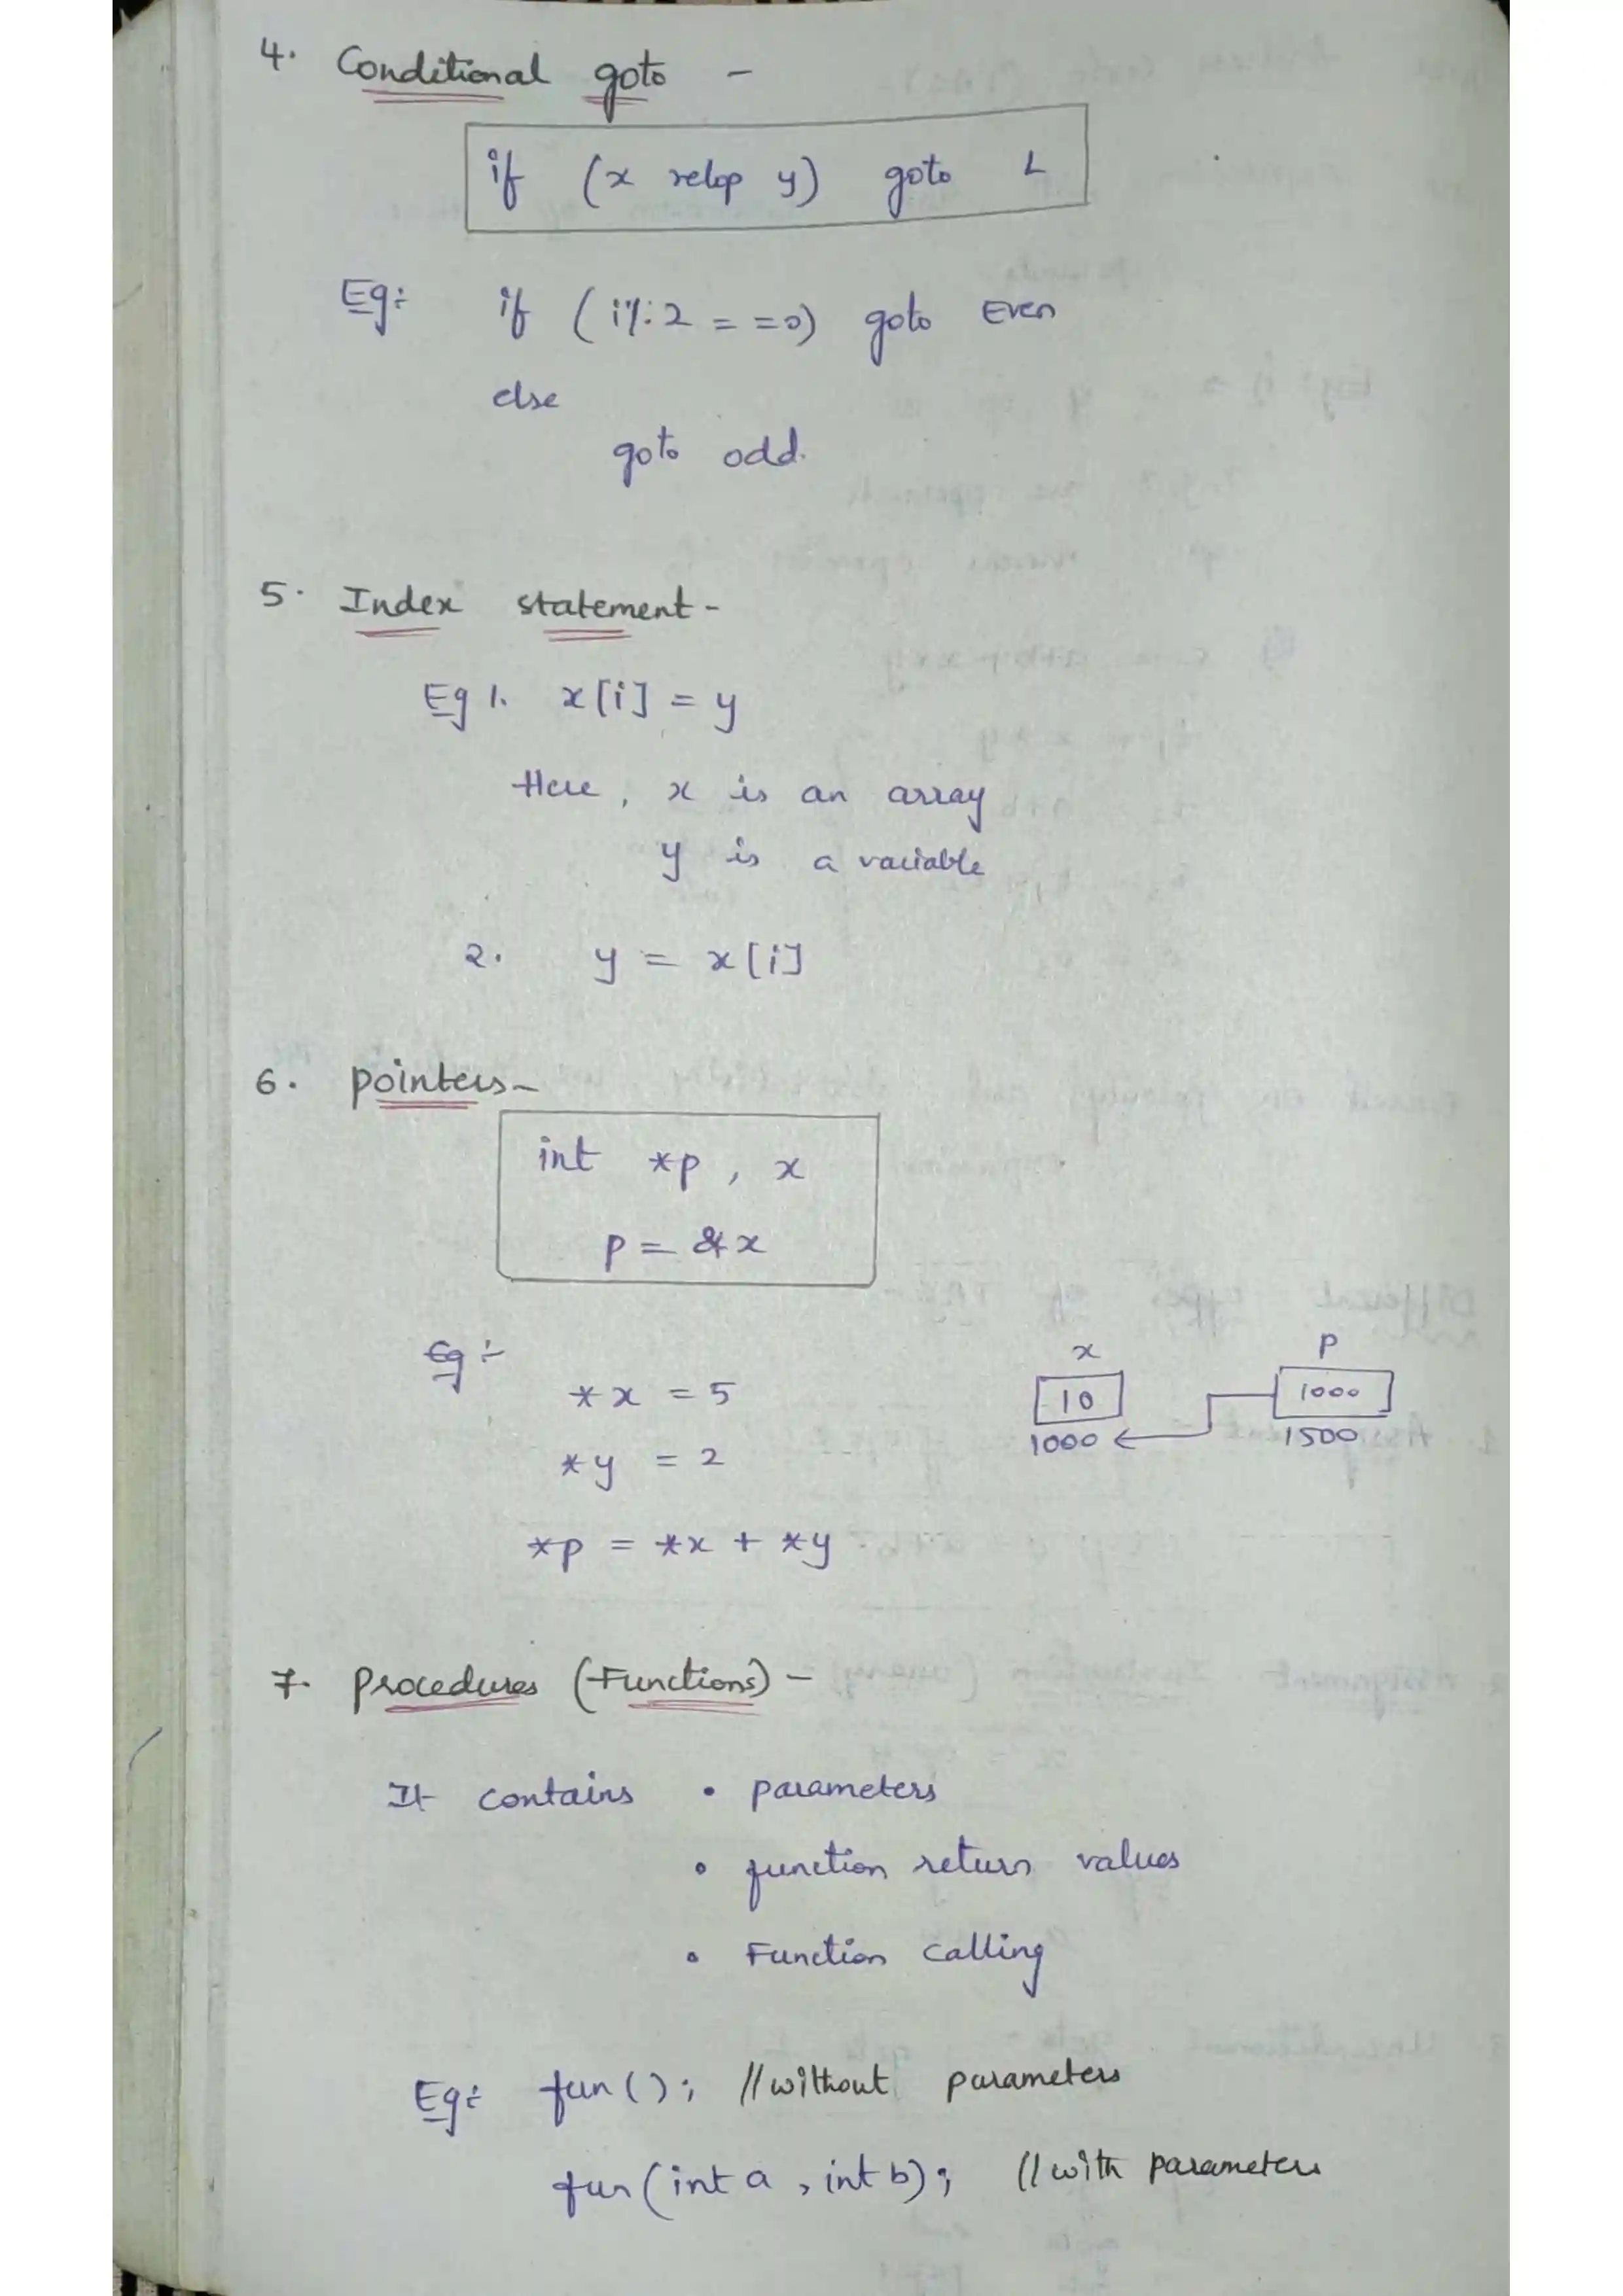 4. Conditional goto -
if (x relop y) goto L
Eg:- if (i%2 = =0) goto Even
else
goto odd.
5. Index statement -
Eg 1. x[i] = y
Here, x is an array
y is a variable
2. y = x[i]
6. pointers -
int *p, x
p = &x
Eg :-
*x = 5
*y = 2
*p = *x + *y
x p
10 1000
1000 1500
7. procedures (Functions) -
It contains • parameters
• function return values
• Function calling
Eg:- fun(); //without parameters
fun(int a, int b); //with parameters